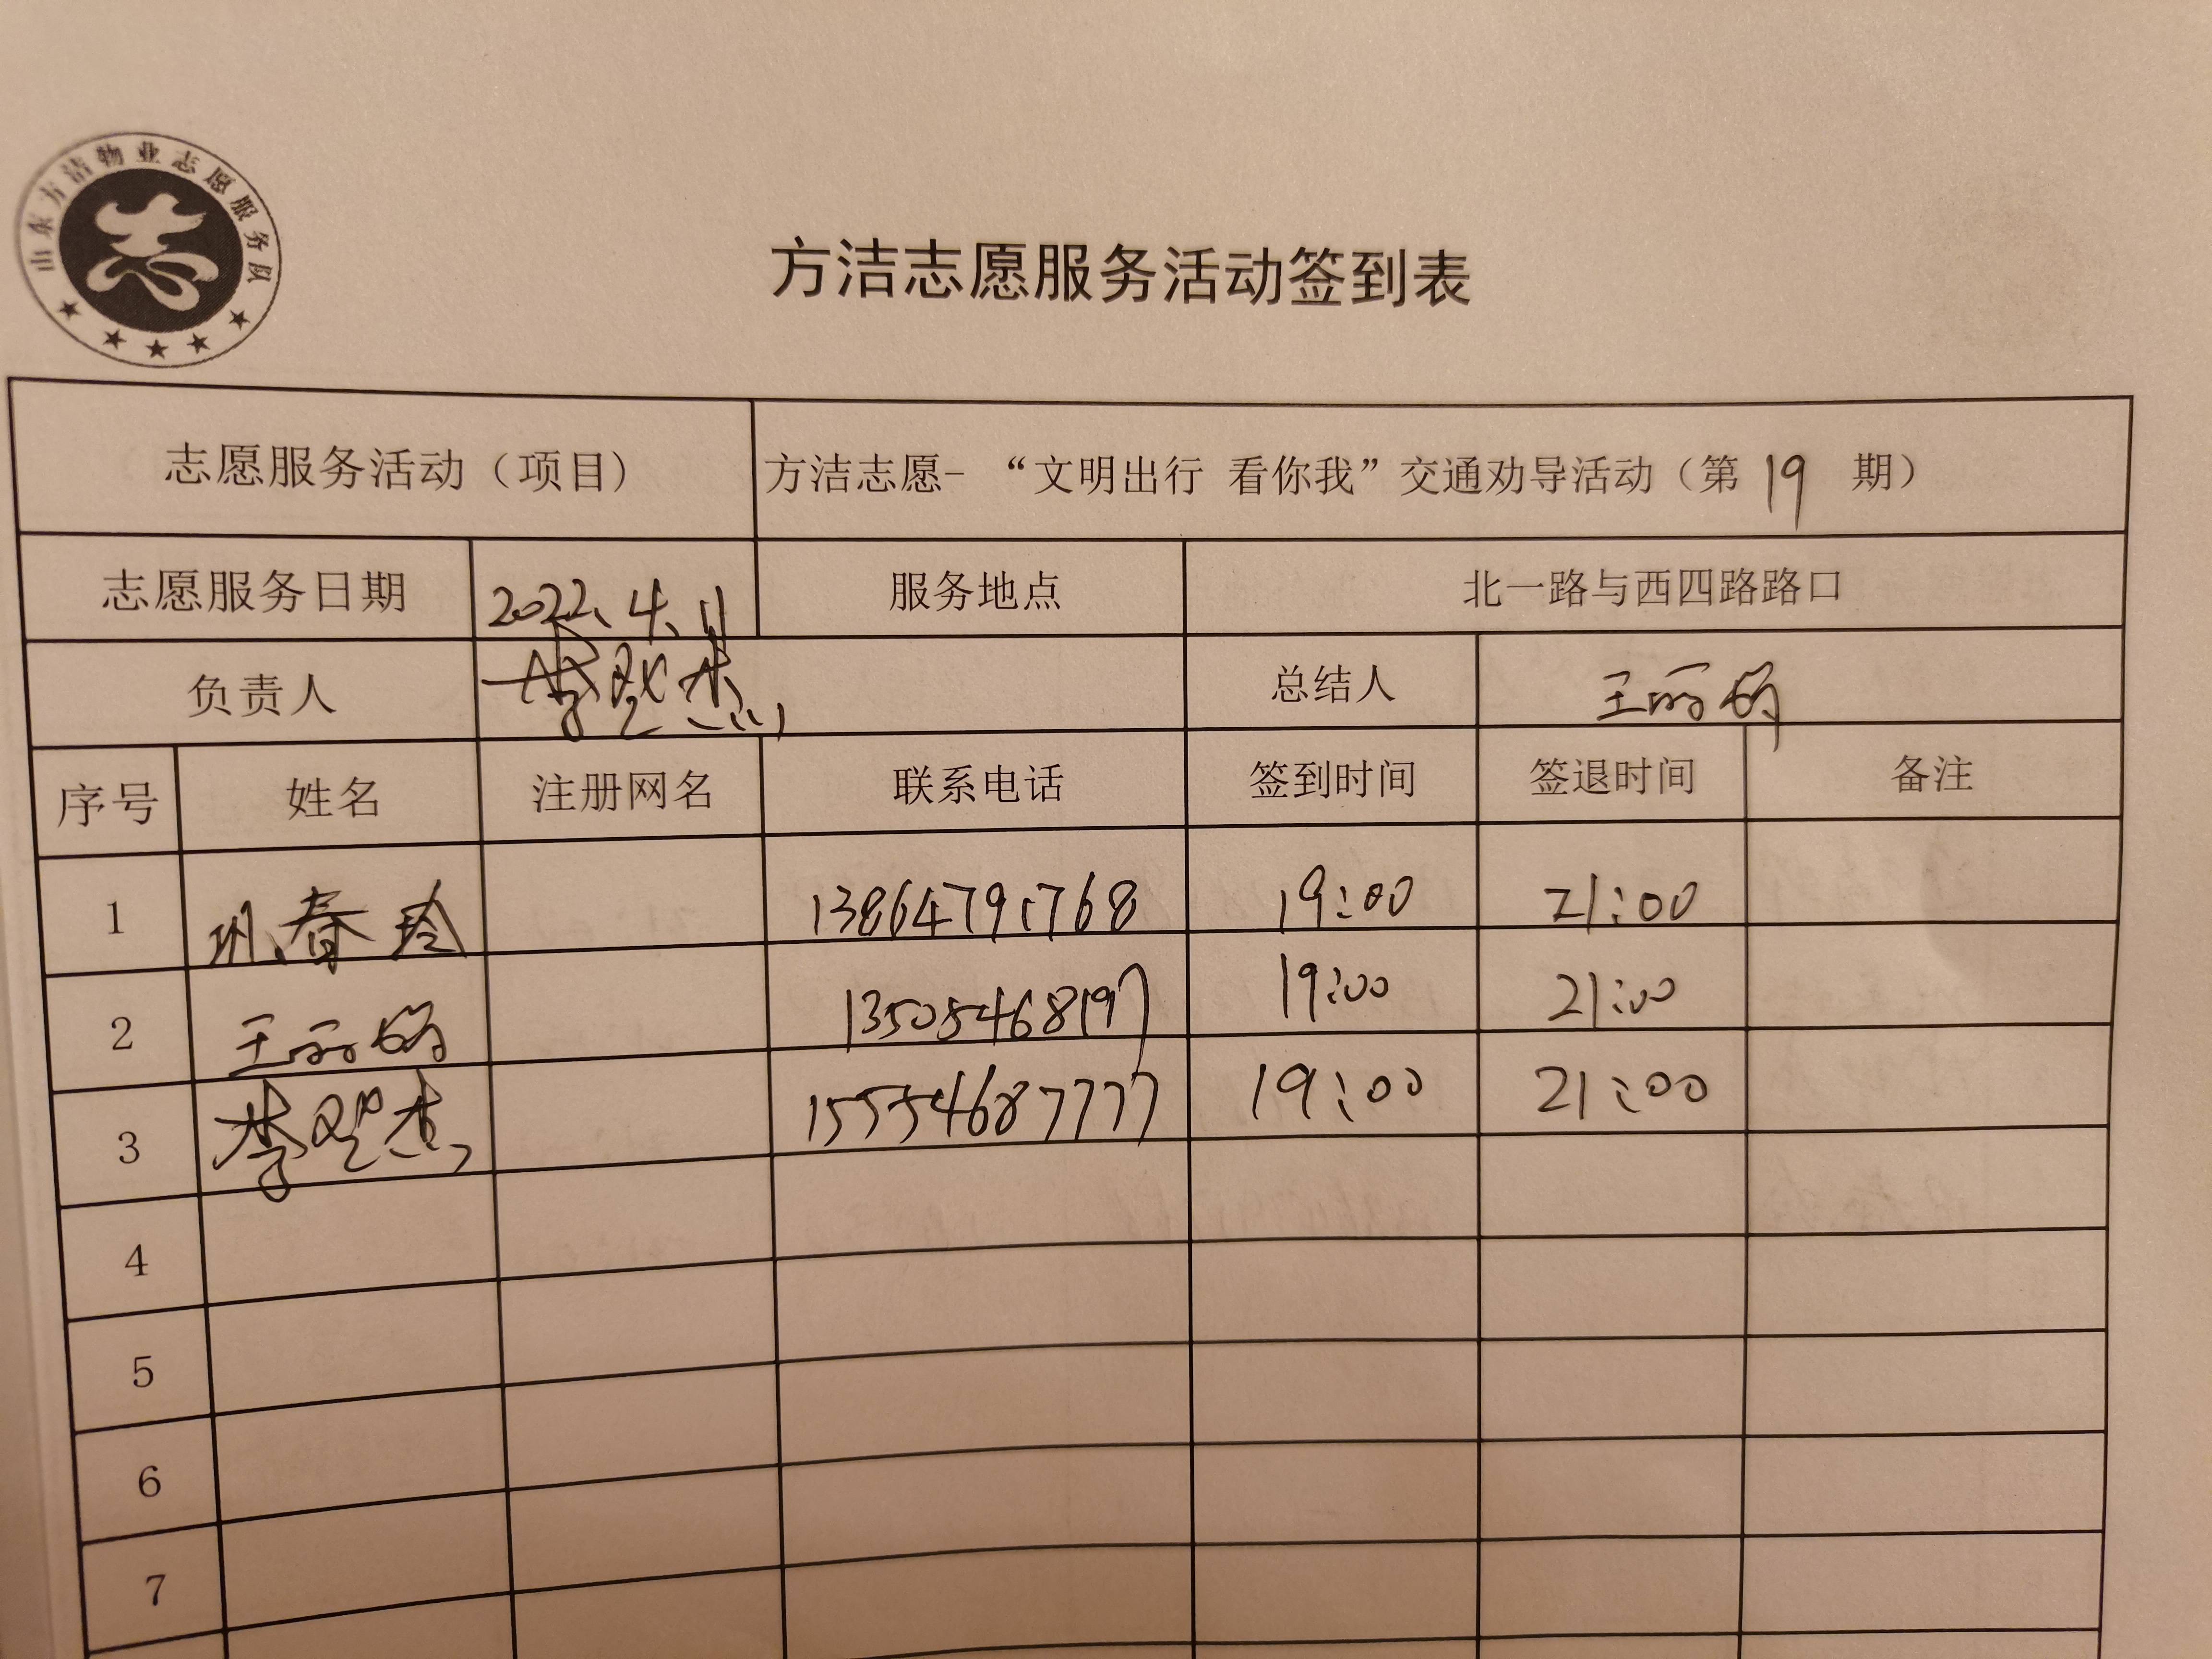 山东方洁物业志愿服务队
方洁志愿服务活动签到表
志愿服务活动（项目） 方洁志愿-“文明出行 看你我”交通劝导活动（第 19 期）
志愿服务日期 2022.4.11 服务地点 北一路与西四路路口
负责人 李 杰 总结人 王丽
序号 姓名 注册网名 联系电话 签到时间 签退时间 备注
1 巩春玲 13864791768 19:00 21:00
2 王丽 13505468197 19:00 21:00
3 李 杰 15554687777 19:00 21:00
4
5
6
7